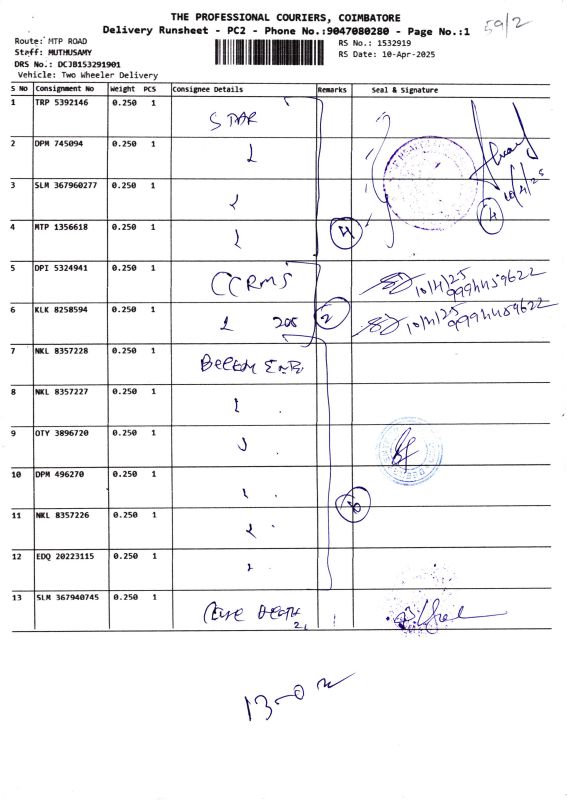 THE PROFESSIONAL COURIERS, COIMBATORE
Delivery Runsheet - PC2 - Phone No.:9047080280 - Page No.:1
59/2
Route: MTP ROAD
RS No.: 1532919
Staff: MUTHUSAMY
RS Date: 10-Apr-2025
DRS No.: DCJB153291901
Vehicle: Two Wheeler Delivery
S No Consignment No Weight PCS Consignee Details Remarks Seal & Signature
1 TRP 5392146 0.250 1 STAR
2 DPM 745094 0.250 1
3 SLM 367960277 0.250 1
10/4/25
4 MTP 1356618 0.250 1 4 4
5 DPI 5324941 0.250 1 CCRMS 10/4/25 9994459622
6 KLK 8258594 0.250 1 205 2 10/4/25 9994459622
7 NKL 8357228 0.250 1
8 NKL 8357227 0.250 1
9 OTY 3896720 0.250 1
10 DPM 496270 0.250 1
11 NKL 8357226 0.250 1
12 EDQ 20223115 0.250 1
13 SLM 367940745 0.250 1